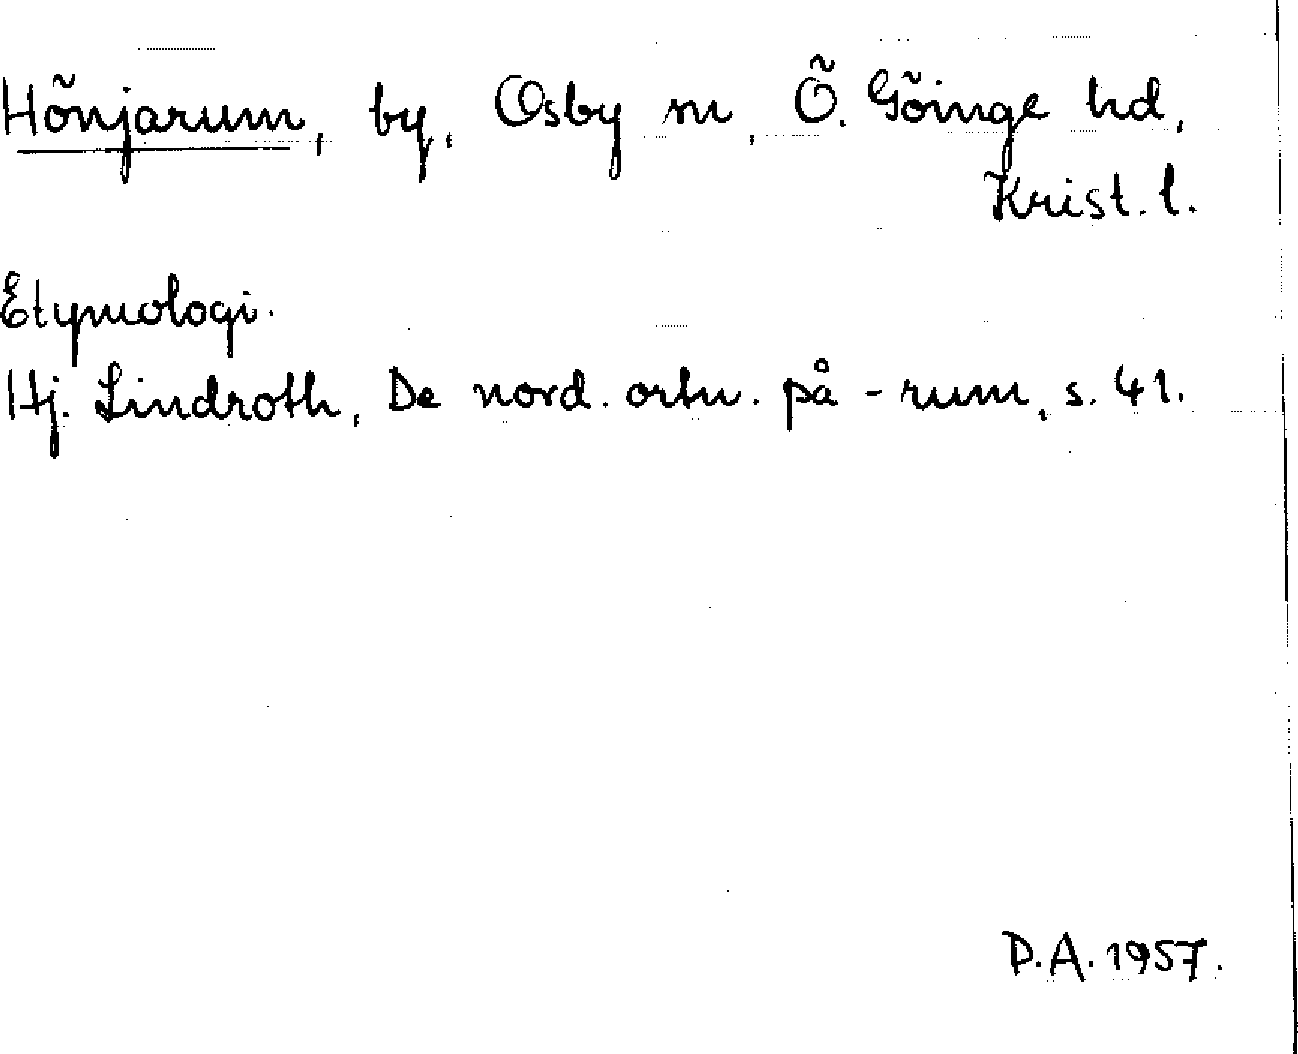 Hõnjarum, by, Osby sn, Õ. Gõinge hd,
Krist. l.
Etymologi.
Hj. Lindroth, De nord. ortn. på -rum, s. 41.
P.A. 1957.